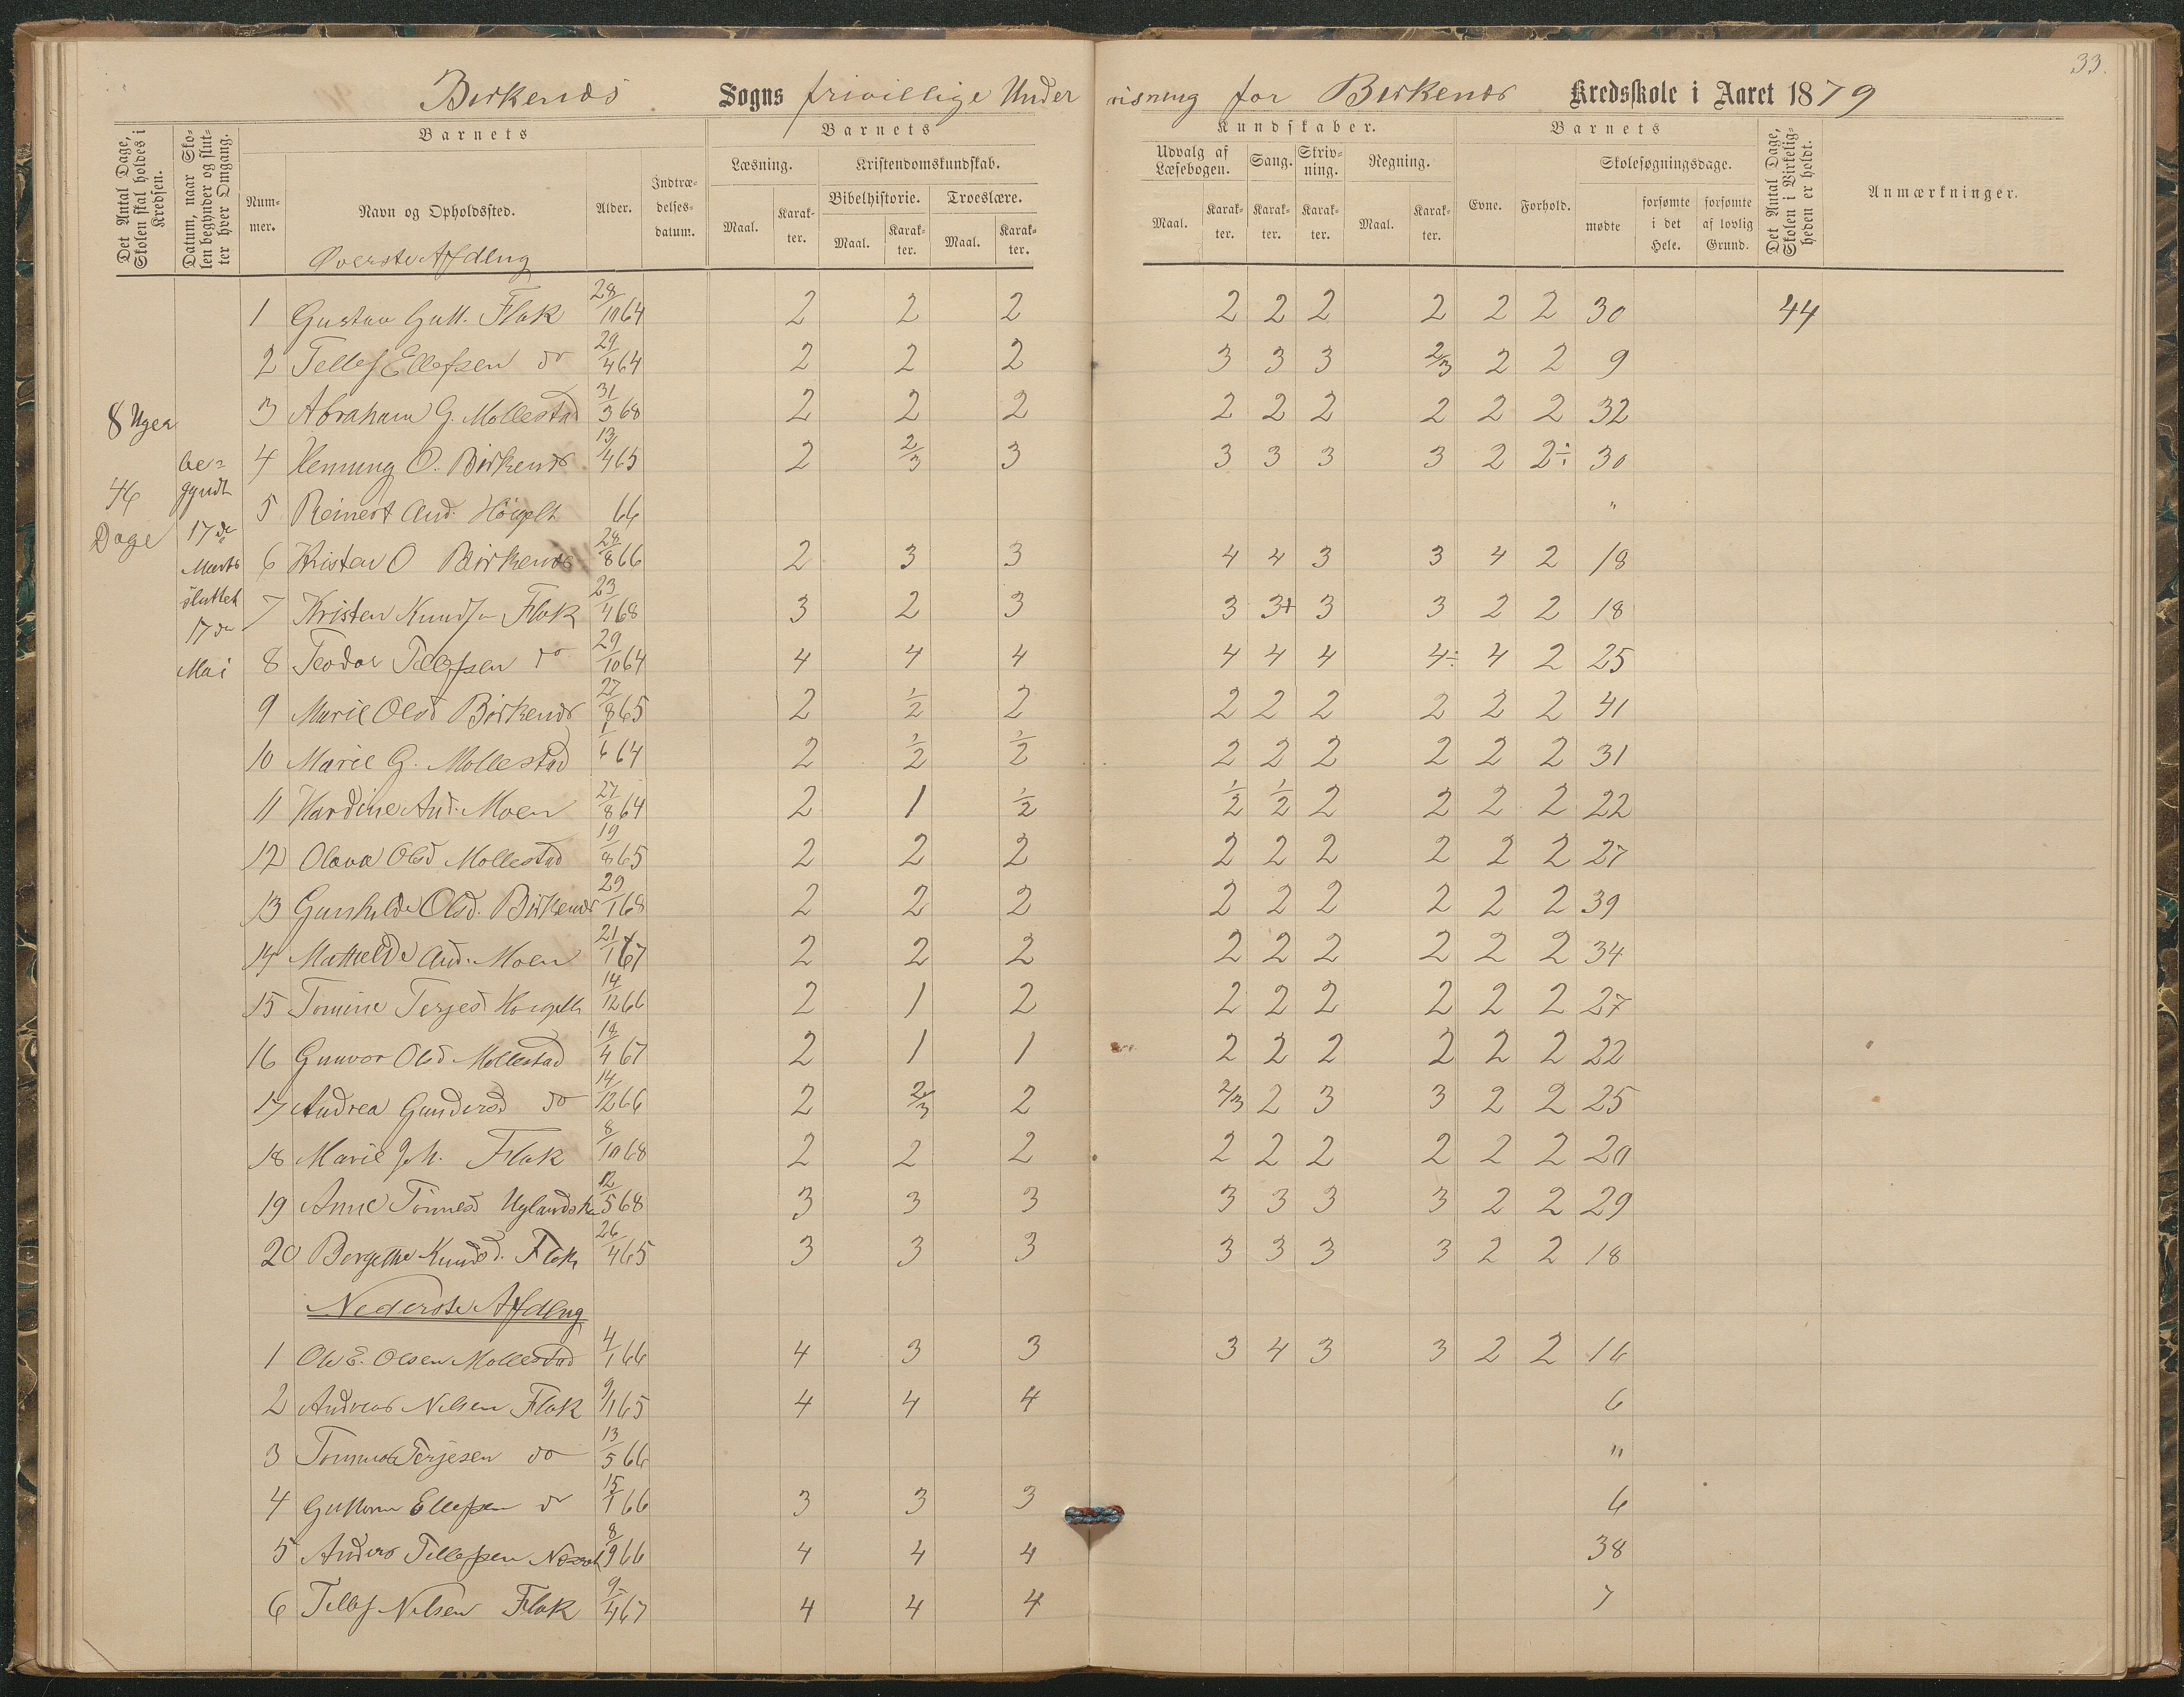 33.
Birkenæs Sogns frivillige Undervisning for Birkenæs Kredsskole i Aaret 1879
Det Antal Dage, Skolen skal holdes i Kredsen.
Datum, naar Skolen begynder og slutter hver Omgang.
Barnets
Nummer.
Navn og Opholdssted.
Alder.
Indtrædelsesdatum.
Barnets
Læsning.
Kristendomskundskab.
Bibelhistorie.
Troeslære.
Maal.
Karakter.
Maal.
Karakter.
Maal.
Karakter.
Kundskaber.
Udvalg af Læsebogen.
Sang.
Skrivning.
Regning.
Maal.
Karakter.
Karakter.
Karakter.
Maal.
Karakter.
Barnets
Evne.
Forhold.
Skolesøgningsdage.
mødte
forsømte i det Hele.
forsømte af lovlig Grund.
Det Antal Dage, Skolen i Virkeligheden er holdt.
Anmærkninger.
Øverste Afdlng
8 Uger
46
Dage
be=
gyndt
17de
Marts
sluttet
17de
Mai
1 Gustav Gutt. Flak 28/10 64 2 2 2 2 2 2 2 2 2 30 44
2 Tellef Ellefsen do 29/4 64 2 2 2 3 3 3 2/3 2 2 9
3 Abraham G. Mollestad 31/3 68 2 2 2 2 2 2 2 2 2 32
4 Henning O. Birkenæs 13/4 65 2 2/3 3 3 3 3 3 2 2÷ 30
5 Reinert And. Høigilt 66 "
6 Kristen O Birkenæs 28/8 66 2 3 3 4 4 3 3 4 2 18
7 Kristen Knuds Flak 23/4 68 3 2 3 3 3+ 3 3 2 2 18
8 Teodor Tellefsen do 29/10 64 4 4 4 4 4 4 4÷ 4 2 25
9 Marie Olsd Birkenæs 27/8 65 2 1/2 2 2 2 2 2 2 2 41
10 Marie G. Mollestad 1/6 64 2 1/2 1/2 2 2 2 2 2 2 31
11 Hardine And. Moen 27/8 64 2 1 1/2 1/2 1/2 2 2 2 2 22
12 Olava Olsd Mollestad 19/8 65 2 2 2 2 2 2 2 2 2 27
13 Gunhilde Olsd. Birkenæs 29/1 68 2 2 2 2 2 2 2 2 2 39
14 Mathilde And. Moen 21/1 67 2 2 2 2 2 2 2 2 2 34
15 Tomine Terjesd 14/12 66 2 1 2 2 2 2 2 2 2 27
16 Gunvor Olsd Mollestad 18/4 67 2 1 1 2 2 2 2 2 2 22
17 Andrea Gundersd do 14/12 66 2 2/3 2 2/3 2 3 3 2 2 25
18 Marie Joh. Flak 8/10 68 2 2 2 2 2 2 2 2 2 20
19 Anne Tönnesd Uglands 12/5 68 3 3 3 3 3 3 3 2 2 29
20 Borgethe Knudsd. Flak 26/4 65 3 3 3 3 3 3 3 2 2 18
Nederste Afdlng
1 Ole E. Olsen Mollestad 4/1 66 4 3 3 3 4 3 3 2 2 16
2 Andreas Nilsen Flak 9/1 65 4 4 4 6
3 Tönnes Terjesen do 13/5 66 "
4 Guttorm Ellefsen do 15/1 66 3 3 3 6
5 Anders Tellefsen 8/9 66 4 4 4 38
6 Tellef Nilsen Flak 9/4 67 4 4 4 7